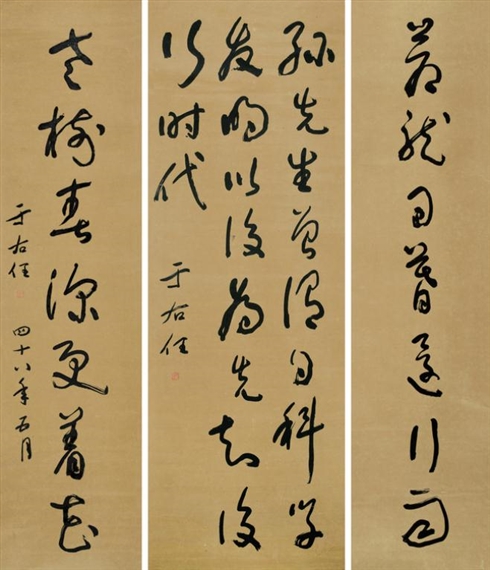 蒼龍日暮還行雨
孫先生曾謂自科學
發明以後為先知後
行時代
于右任
老樹春深更著花
于右任 四十八年五月